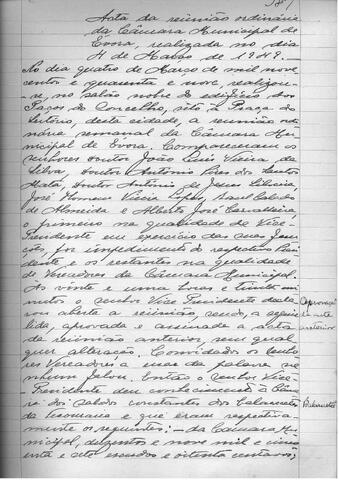 Acta da reunião ordinária
da Câmara Municipal de
Evora, realizada no dia
4 de Março de 1949.
No dia quatro de Março de mil nove
centos e quarenta e nove, realizou-
se, no salão nobre do edificio dos
Paços do Concelho, sito à Praça do
Sertório, desta cidade, a reunião ordi
nária semanal da Câmara Mu
nicipal de Evora. Compareceram os
senhores doutor João Luis Vieira da
Silva, doutor António Pires dos Santos
Mata, doutor António de Jesus Silveira,
José Homem Vieira Lopes, Raul Calado
de Almeida e Alberto José Carvalheira
o primeiro na qualidade de Vice-
Presidente em exercicio das suas fun
ções, por impedimento do respectivo Presi
dente e os restantes na qualidade
de Vereadores da Câmara Municipal.
As vinte e uma horas e trinta mi
nutos o senhor Vice Presidente decla
rou aberta a reunião, sendo, a seguir
lida, aprovada e assinada a acta
da reunião anterior sem qual
quer alteração. Convidados os Senho
res Vereadores a usar da palavra ne
nhum falou. Então o senhor Vice-
Presidente deu conhecimento à Câma
ra dos saldos constantes dos balancetes
da Tesouraria e que eram respectiva
mente os seguintes: — da Câmara Mu
nicipal, duzentos e nove mil e cinco
enta e sete escudos e oitenta centavos;
Aprovação
da acta
anterior
Balancetes